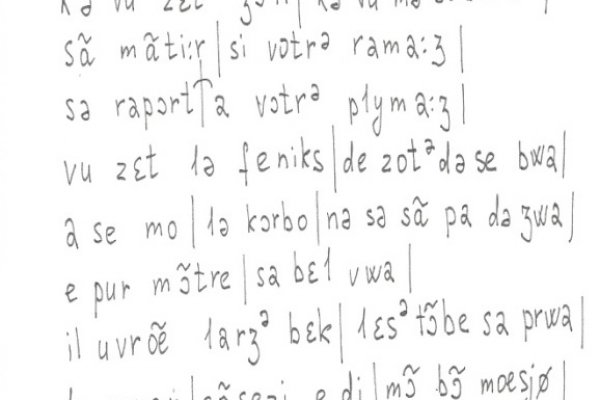 kə vu zɛt ʒɔli|kə vu mə
sɑ̃ mɑ̃ti:r|si vɔtrə rama:ʒ|
sə rapɔrt|a vɔtrə plyma:ʒ|
vu zɛt lə feniks|de zotᵊdə se bwa|
a se mo|lə kɔrbo|nə sə sɑ̃ pa də ʒwa|
e pur mɔ̃tre|sa bɛl vwa|
il uvrœ̃ larʒᵊ bɛk|lɛsᵊ tɔ̃be sa prwa|
e di|mɔ̃ bɔ̃ moesjø|